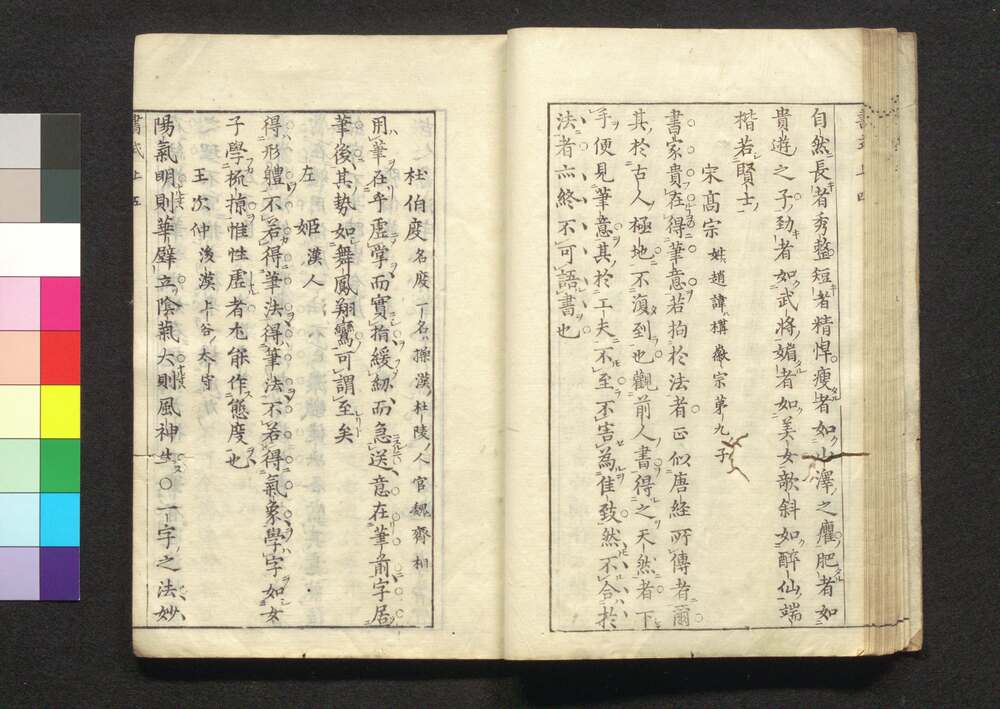 自然長者秀整短者精悍瘦者如山澤之癯肥者如
貴遊之子勁者如武將媚者如美女欹斜如醉仙端
楷若賢士
宋高宗 姓趙諱構徽宗第九子
書家貴在得筆意若拘於法者正似唐経所傳者爾
其於古人極地不復到也觀前人書得之天然者下
手便見筆意其於工夫不至不害為佳致然不合於
法者亦終不可語書也
杜伯度 名度一名操漢杜陵人官魏齊相
用筆在乎虛掌而實指緩紉而急送意在筆前字居
筆後其勢如舞鳳翔鸞可謂至矣
左姬 漢人
得形體不若得筆法得筆法不若得氣象學字如女
子學梳掠惟性虛者尤能作態度也
王次仲 後漢上谷太守
陽氣明則華壁立陰氣太則風神生〇一字之法妙